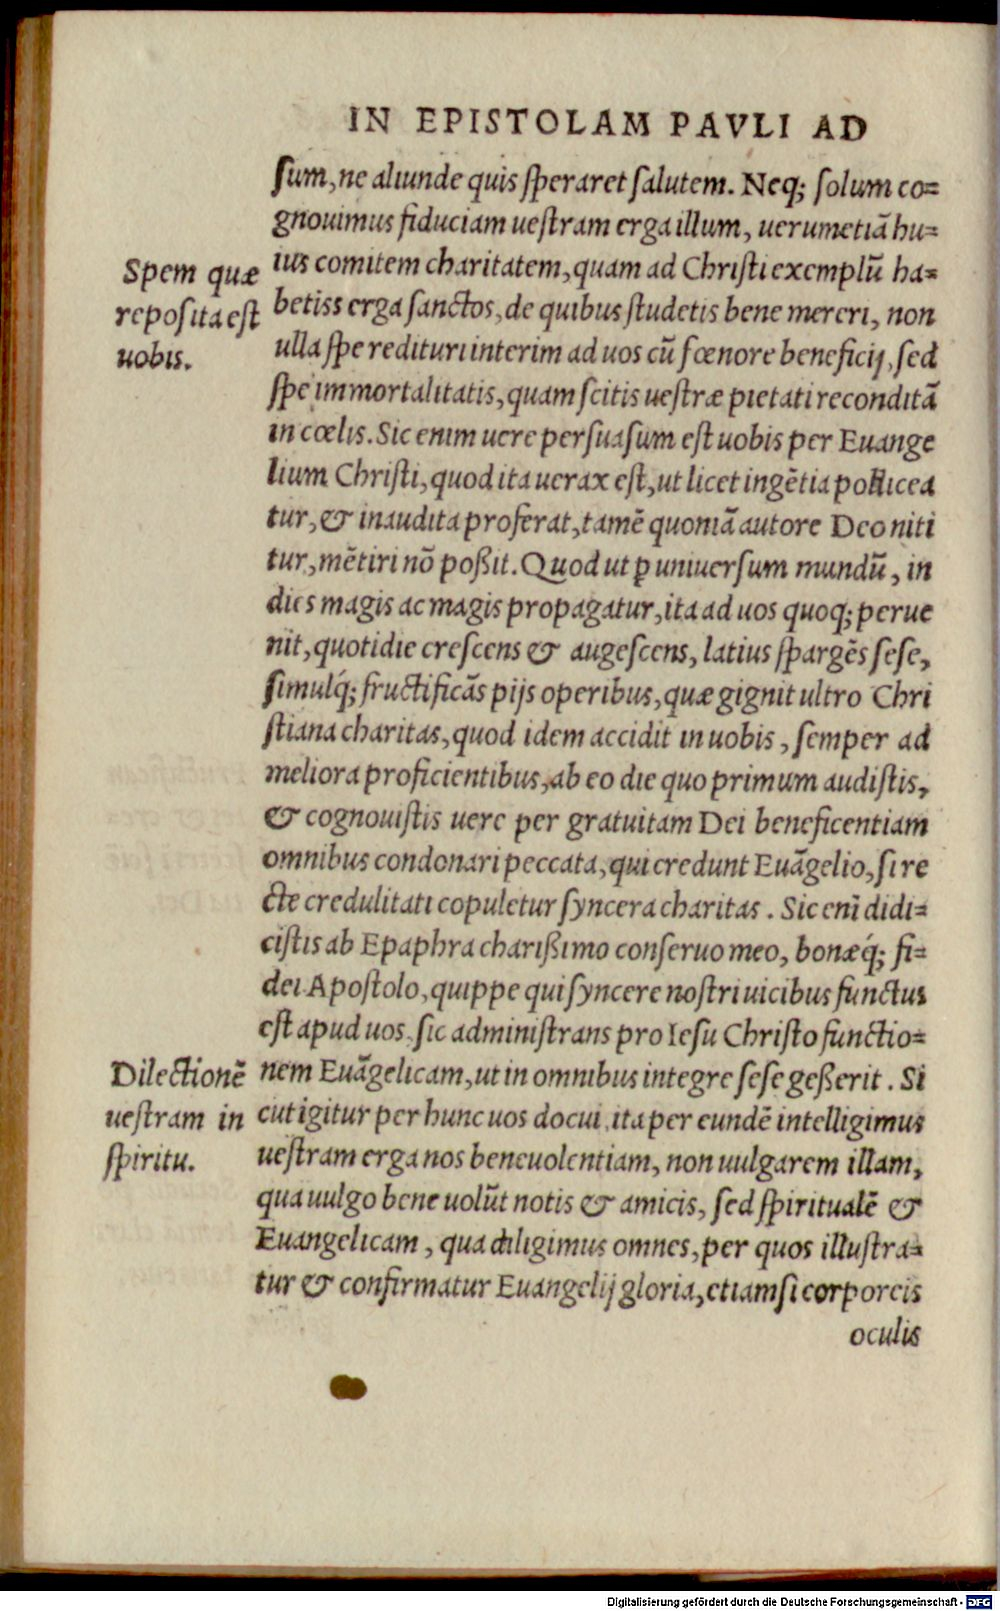 IN EPISTOLAM PAVLI AD
ſum, ne aliunde quis ſperaret ſalutem. Neq; ſolum co=
gnouimus fiduciam ueſtram erga illum, uerumetiã hu=
ius comitem charitatem, quam ad Chriſti exemplũ ha=
betiss erga ſanctos, de quibus ſtudetis bene mereri, non
ulla ſpe redituri interim ad uos cũ fœnore beneficij, ſed
ſpe immortalitatis, quam ſcitis ueſtræ pietati reconditã
in cœlis. Sic enim uere perſuaſum eſt uobis per Euange
lium Chriſti, quod ita uerax eſt, ut licet ingẽtia pollicea
tur, & inaudita proferat, tamẽ quoniã autore Deo niti
tur, mẽtiri nõ poßit. Quod ut ꝑ uniuerſum mundũ, in
dies magis ac magis propagatur, ita ad uos quoq; perue
nit, quotidie creſcens & augeſcens, latius ſpargẽs ſeſe,
ſimulq́; fructificãs pijs operibus, quæ gignit ultro Chri
ſtiana charitas, quod idem accidit in uobis, ſemper ad
meliora proficientibus, ab eo die quo primum audiſtis,
& cognouiſtis uere per gratuitam Dei beneficentiam
omnibus condonari peccata, qui credunt Euãgelio, ſi re
cte credulitati copuletur ſyncera charitas. Sic enĩ didi=
ciſtis ab Epaphra charißimo conſeruo meo, bonæq́; fi=
dei Apoſtolo, quippe qui ſyncere noſtri uicibus functus
eſt apud uos, ſic adminiſtrans pro Ieſu Chriſto functio=
nem Euãgelicam, ut in omnibus integre ſeſe geßerit. Si
cut igitur per hunc uos docui, ita per eundẽ intelligimus
ueſtram erga nos beneuolentiam, non uulgarem illam,
qua uulgo bene uolũt notis & amicis, ſed ſpiritualẽ &
Euangelicam, qua diligimus omnes, per quos illuſtra=
tur & confirmatur Euangelij gloria, etiamſi corporeis
oculis
Spem quæ
repoſita eſt
uobis.
Dilectionẽ
ueſtram in
ſpiritu.
Digitalisierung gefördert durch die Deutsche Forschungsgemeinschaft - DFG